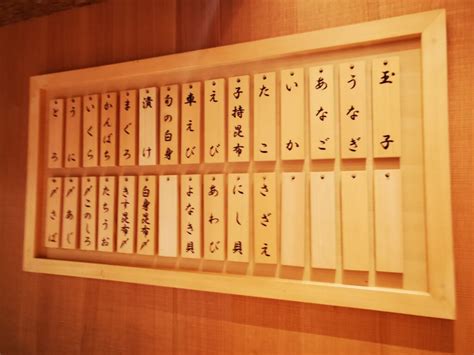 玉子
うなぎ
あなご
いか
たこ
子持昆布
えび
車えび
旬の白身
漬け
まぐろ
かんぱち
いくら
うに
とろ
さざえ
にし貝
あわび
よなき貝
白身昆布〆
きす昆布〆
たちうお
〆このしろ
〆あじ
〆さば